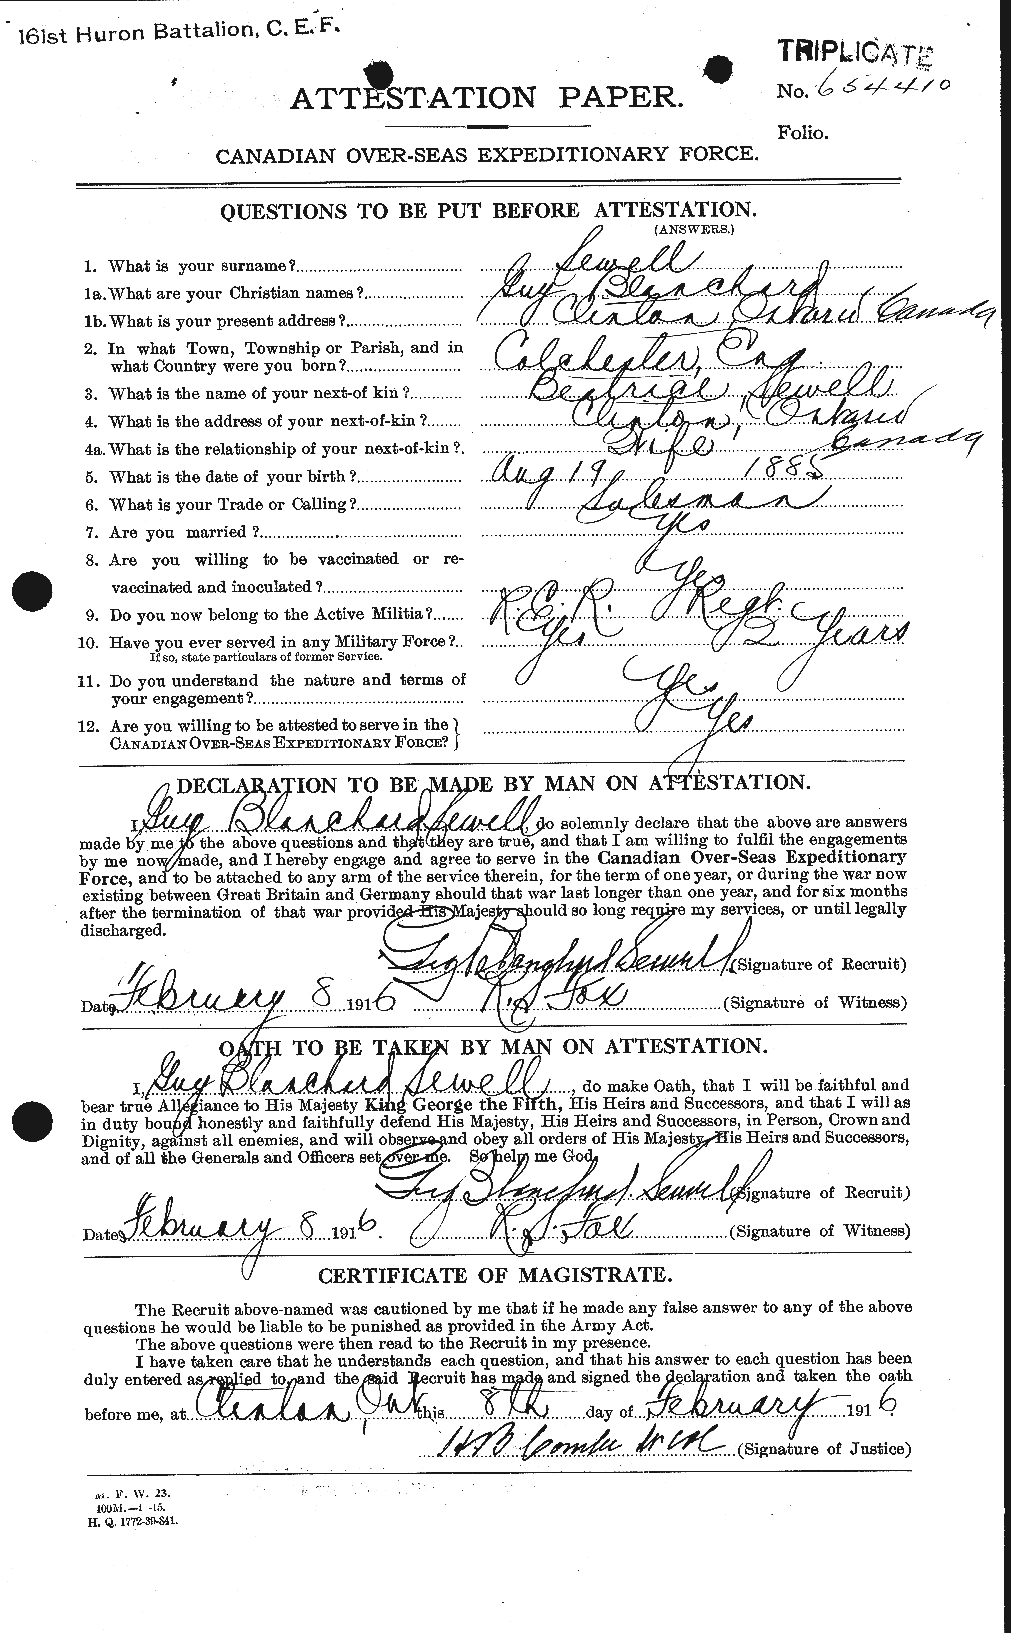 161st Huron Battalion, C. E. F.
TRIPLICATE
ATTESTATION PAPER.
No. 654410
Folio.
CANADIAN OVER-SEAS EXPEDITIONARY FORCE.
QUESTIONS TO BE PUT BEFORE ATTESTATION.
(ANSWERS.)
1. What is your surname? Sewell
1a. What are your Christian names? Guy Blanchard
1b. What is your present address? Clinton, Ontario Canada
2. In what Town, Township or Parish, and in
what Country were you born? Colchester, Eng
3. What is the name of your next-of kin? Beatrice Sewell
4. What is the address of your next-of-kin? Clinton, Ontario
Canada
4a. What is the relationship of your next-of-kin? Wife
5. What is the date of your birth? Aug 19 1885
6. What is your Trade or Calling? Salesman
7. Are you married? Yes
8. Are you willing to be vaccinated or re-
vaccinated and inoculated? Yes
9. Do you now belong to the Active Militia? R. E. R. Regt.
10. Have you ever served in any Military Force? Yes 2 Years
If so, state particulars of former Service.
11. Do you understand the nature and terms of
your engagement? Yes
12. Are you willing to be attested to serve in the
CANADIAN OVER-SEAS EXPEDITIONARY FORCE? Yes
DECLARATION TO BE MADE BY MAN ON ATTESTATION.
I, Guy Blanchard Sewell, do solemnly declare that the above are answers
made by me to the above questions and that they are true, and that I am willing to fulfil the engagements
by me now made, and I hereby engage and agree to serve in the Canadian Over-Seas Expeditionary
Force, and to be attached to any arm of the service therein, for the term of one year, or during the war now
existing between Great Britain and Germany should that war last longer than one year, and for six months
after the termination of that war provided His Majesty should so long require my services, or until legally
discharged.
Guy Blanchard Sewell (Signature of Recruit)
Date February 8 1916 R. S. Fox (Signature of Witness)
OATH TO BE TAKEN BY MAN ON ATTESTATION.
I, Guy Blanchard Sewell, do make Oath, that I will be faithful and
bear true Allegiance to His Majesty King George the Fifth, His Heirs and Successors, and that I will as
in duty bound honestly and faithfully defend His Majesty, His Heirs and Successors, in Person, Crown and
Dignity, against all enemies, and will observe and obey all orders of His Majesty, His Heirs and Successors,
and of all the Generals and Officers set over me. So help me God.
Guy Blanchard Sewell (Signature of Recruit)
Date February 8 1916. R. S. Fox (Signature of Witness)
CERTIFICATE OF MAGISTRATE.
The Recruit above-named was cautioned by me that if he made any false answer to any of the above
questions he would be liable to be punished as provided in the Army Act.
The above questions were then read to the Recruit in my presence.
I have taken care that he understands each question, and that his answer to each question has been
duly entered as replied to, and the said Recruit has made and signed the declaration and taken the oath
before me, at Clinton, Ont this 8th day of February 1916.
H B Combe (Signature of Justice)
M. F. W. 23.
100M.—1-15.
H. Q. 1772-39-841.